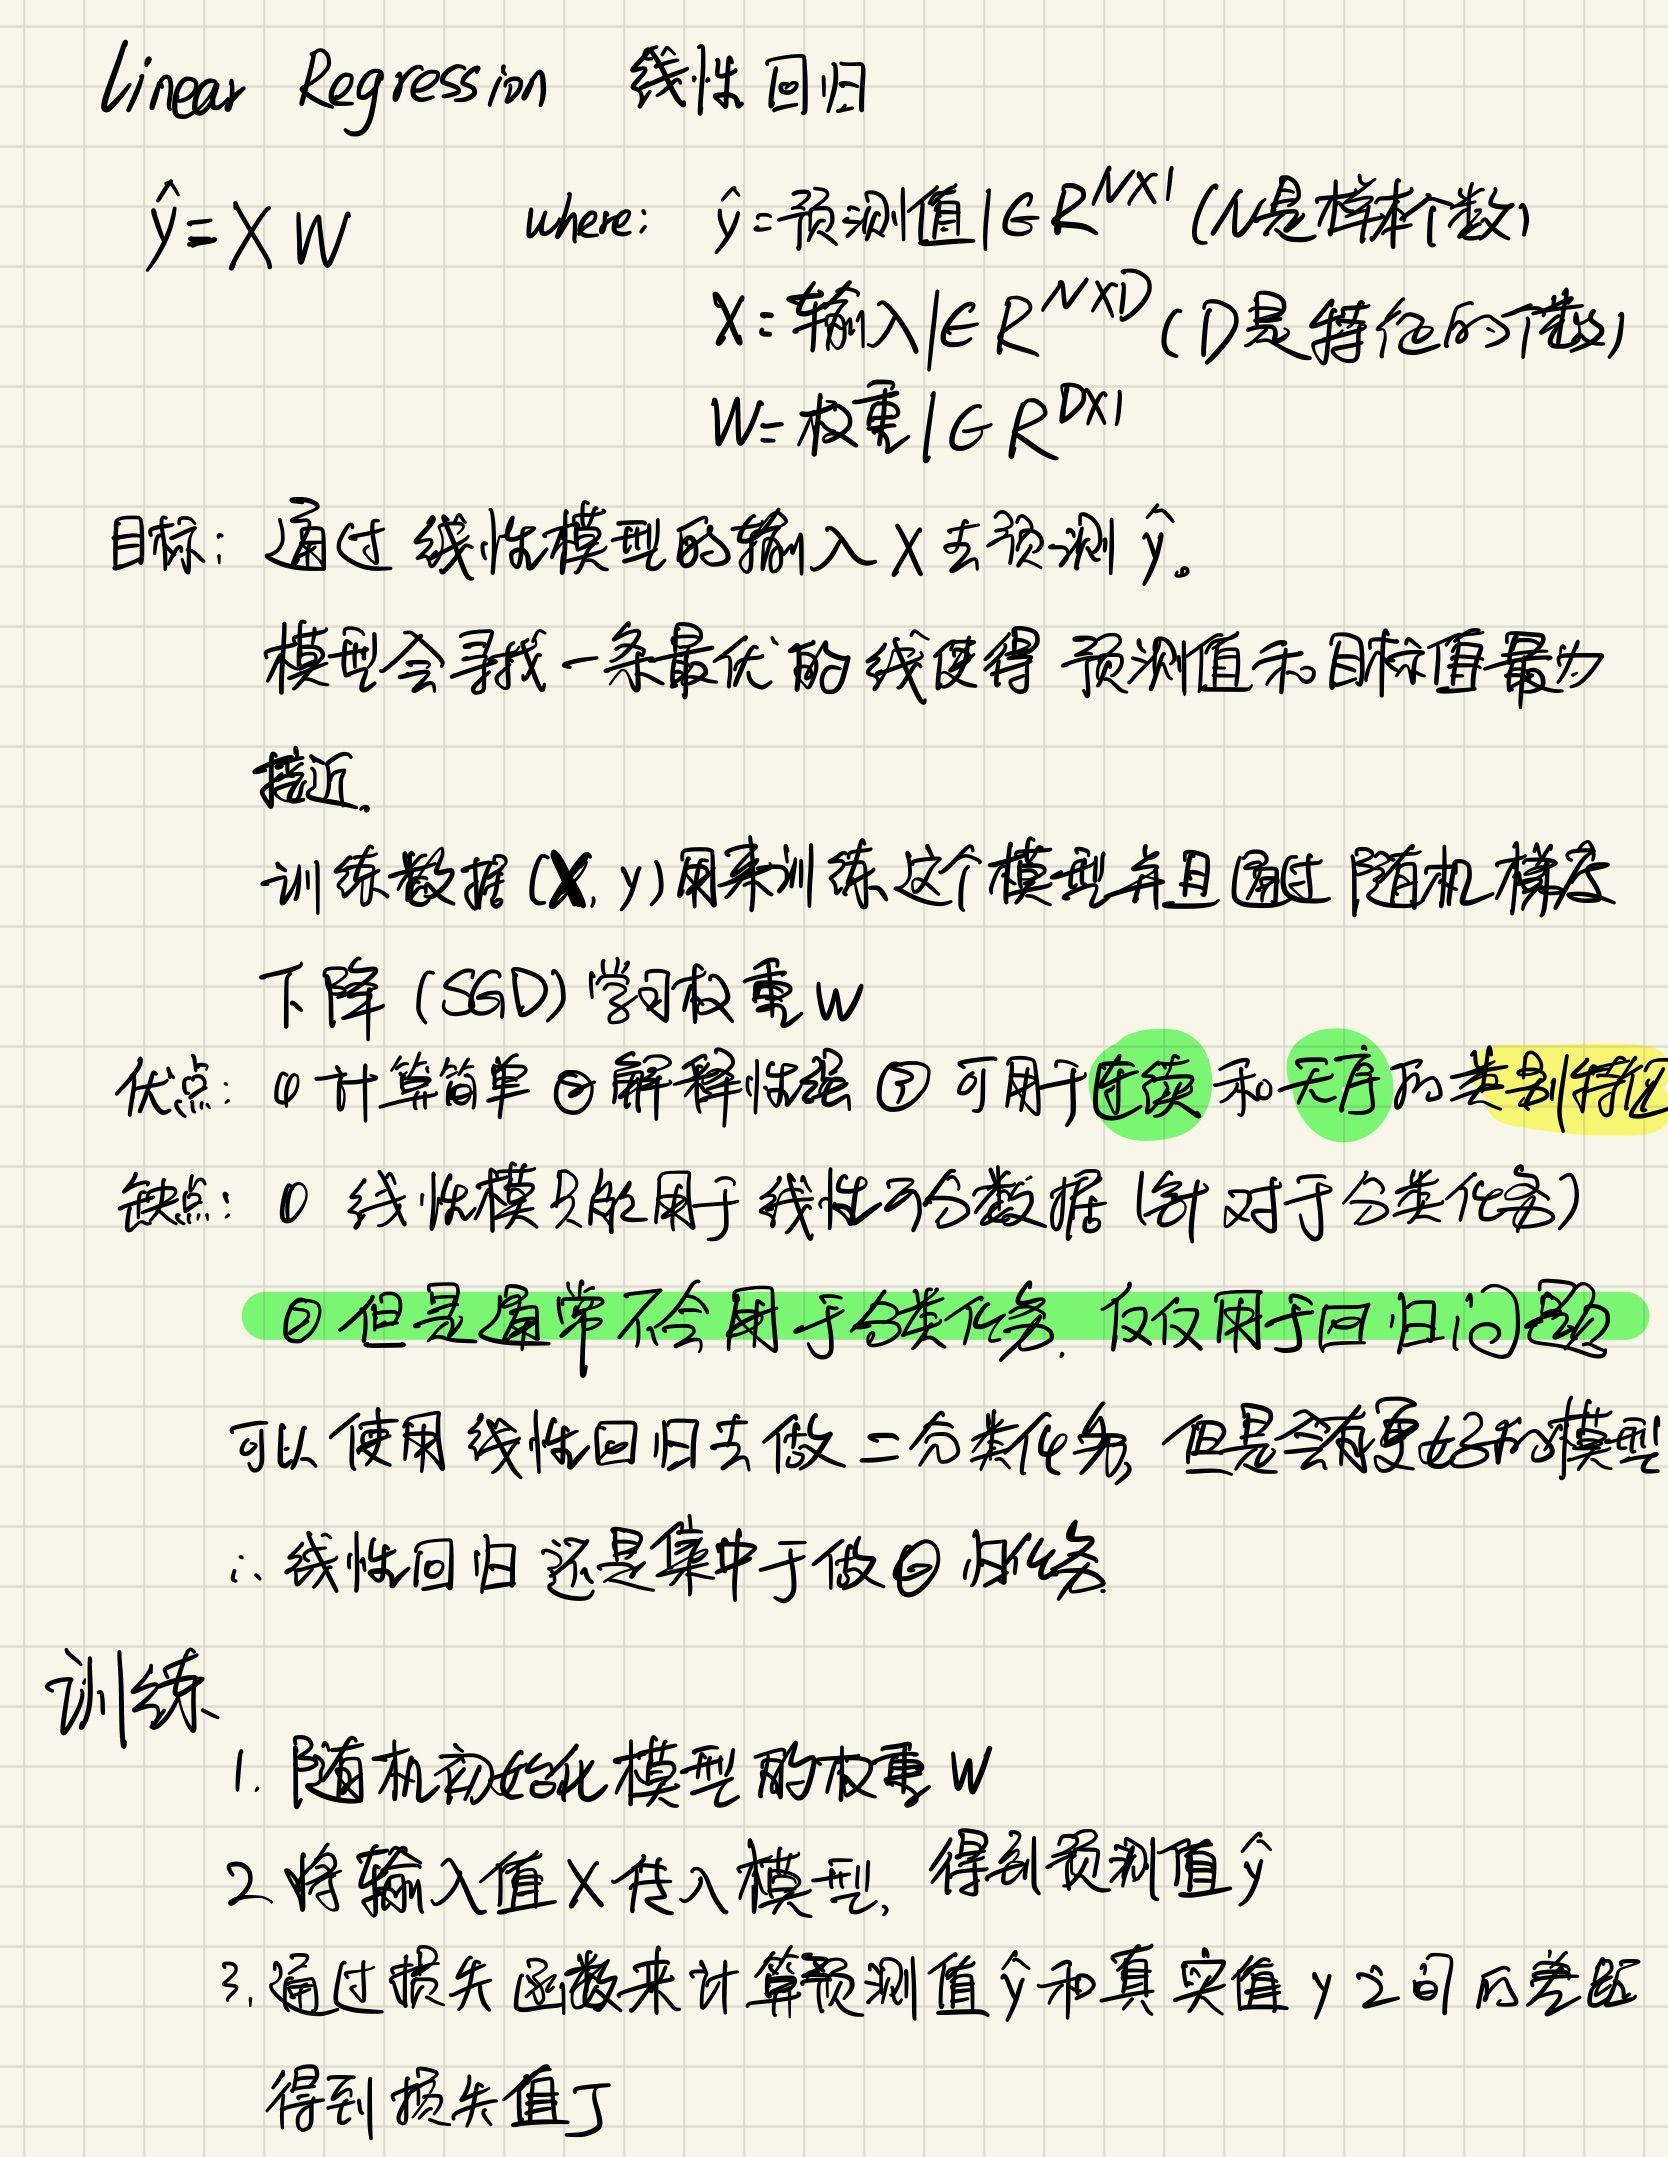 Linear Regression 线性回归
ŷ = X W where: ŷ = 预测值 | ∈ R^{N×1} (N是样本个数)
X = 输入 | ∈ R^{N×D} (D是特征的个数)
W = 权重 | ∈ R^{D×1}
目标: 通过线性模型的输入 X 去预测 ŷ。
模型会寻找一条最优的线使得预测值和目标值最为
接近.
训练数据 (X, y) 用来训练这个模型并且通过随机梯度
下降 (SGD) 学习权重 W
优点: ① 计算简单 ② 解释性强 ③ 可用于连续和无序的类别特征
缺点: ① 线性模只能用于线性可分数据 (针对于分类任务)
② 但是通常不会用于分类任务. 仅仅用于回归问题
可以使用线性回归去做二分类任务, 但是会有更好的模型
∴ 线性回归还是集中于做回归任务.
训练
1. 随机初始化模型的权重 W
2. 将输入值 X 传入模型, 得到预测值 ŷ
3. 通过损失函数来计算预测值 ŷ 和真实值 y 之间的差距
得到损失值 J